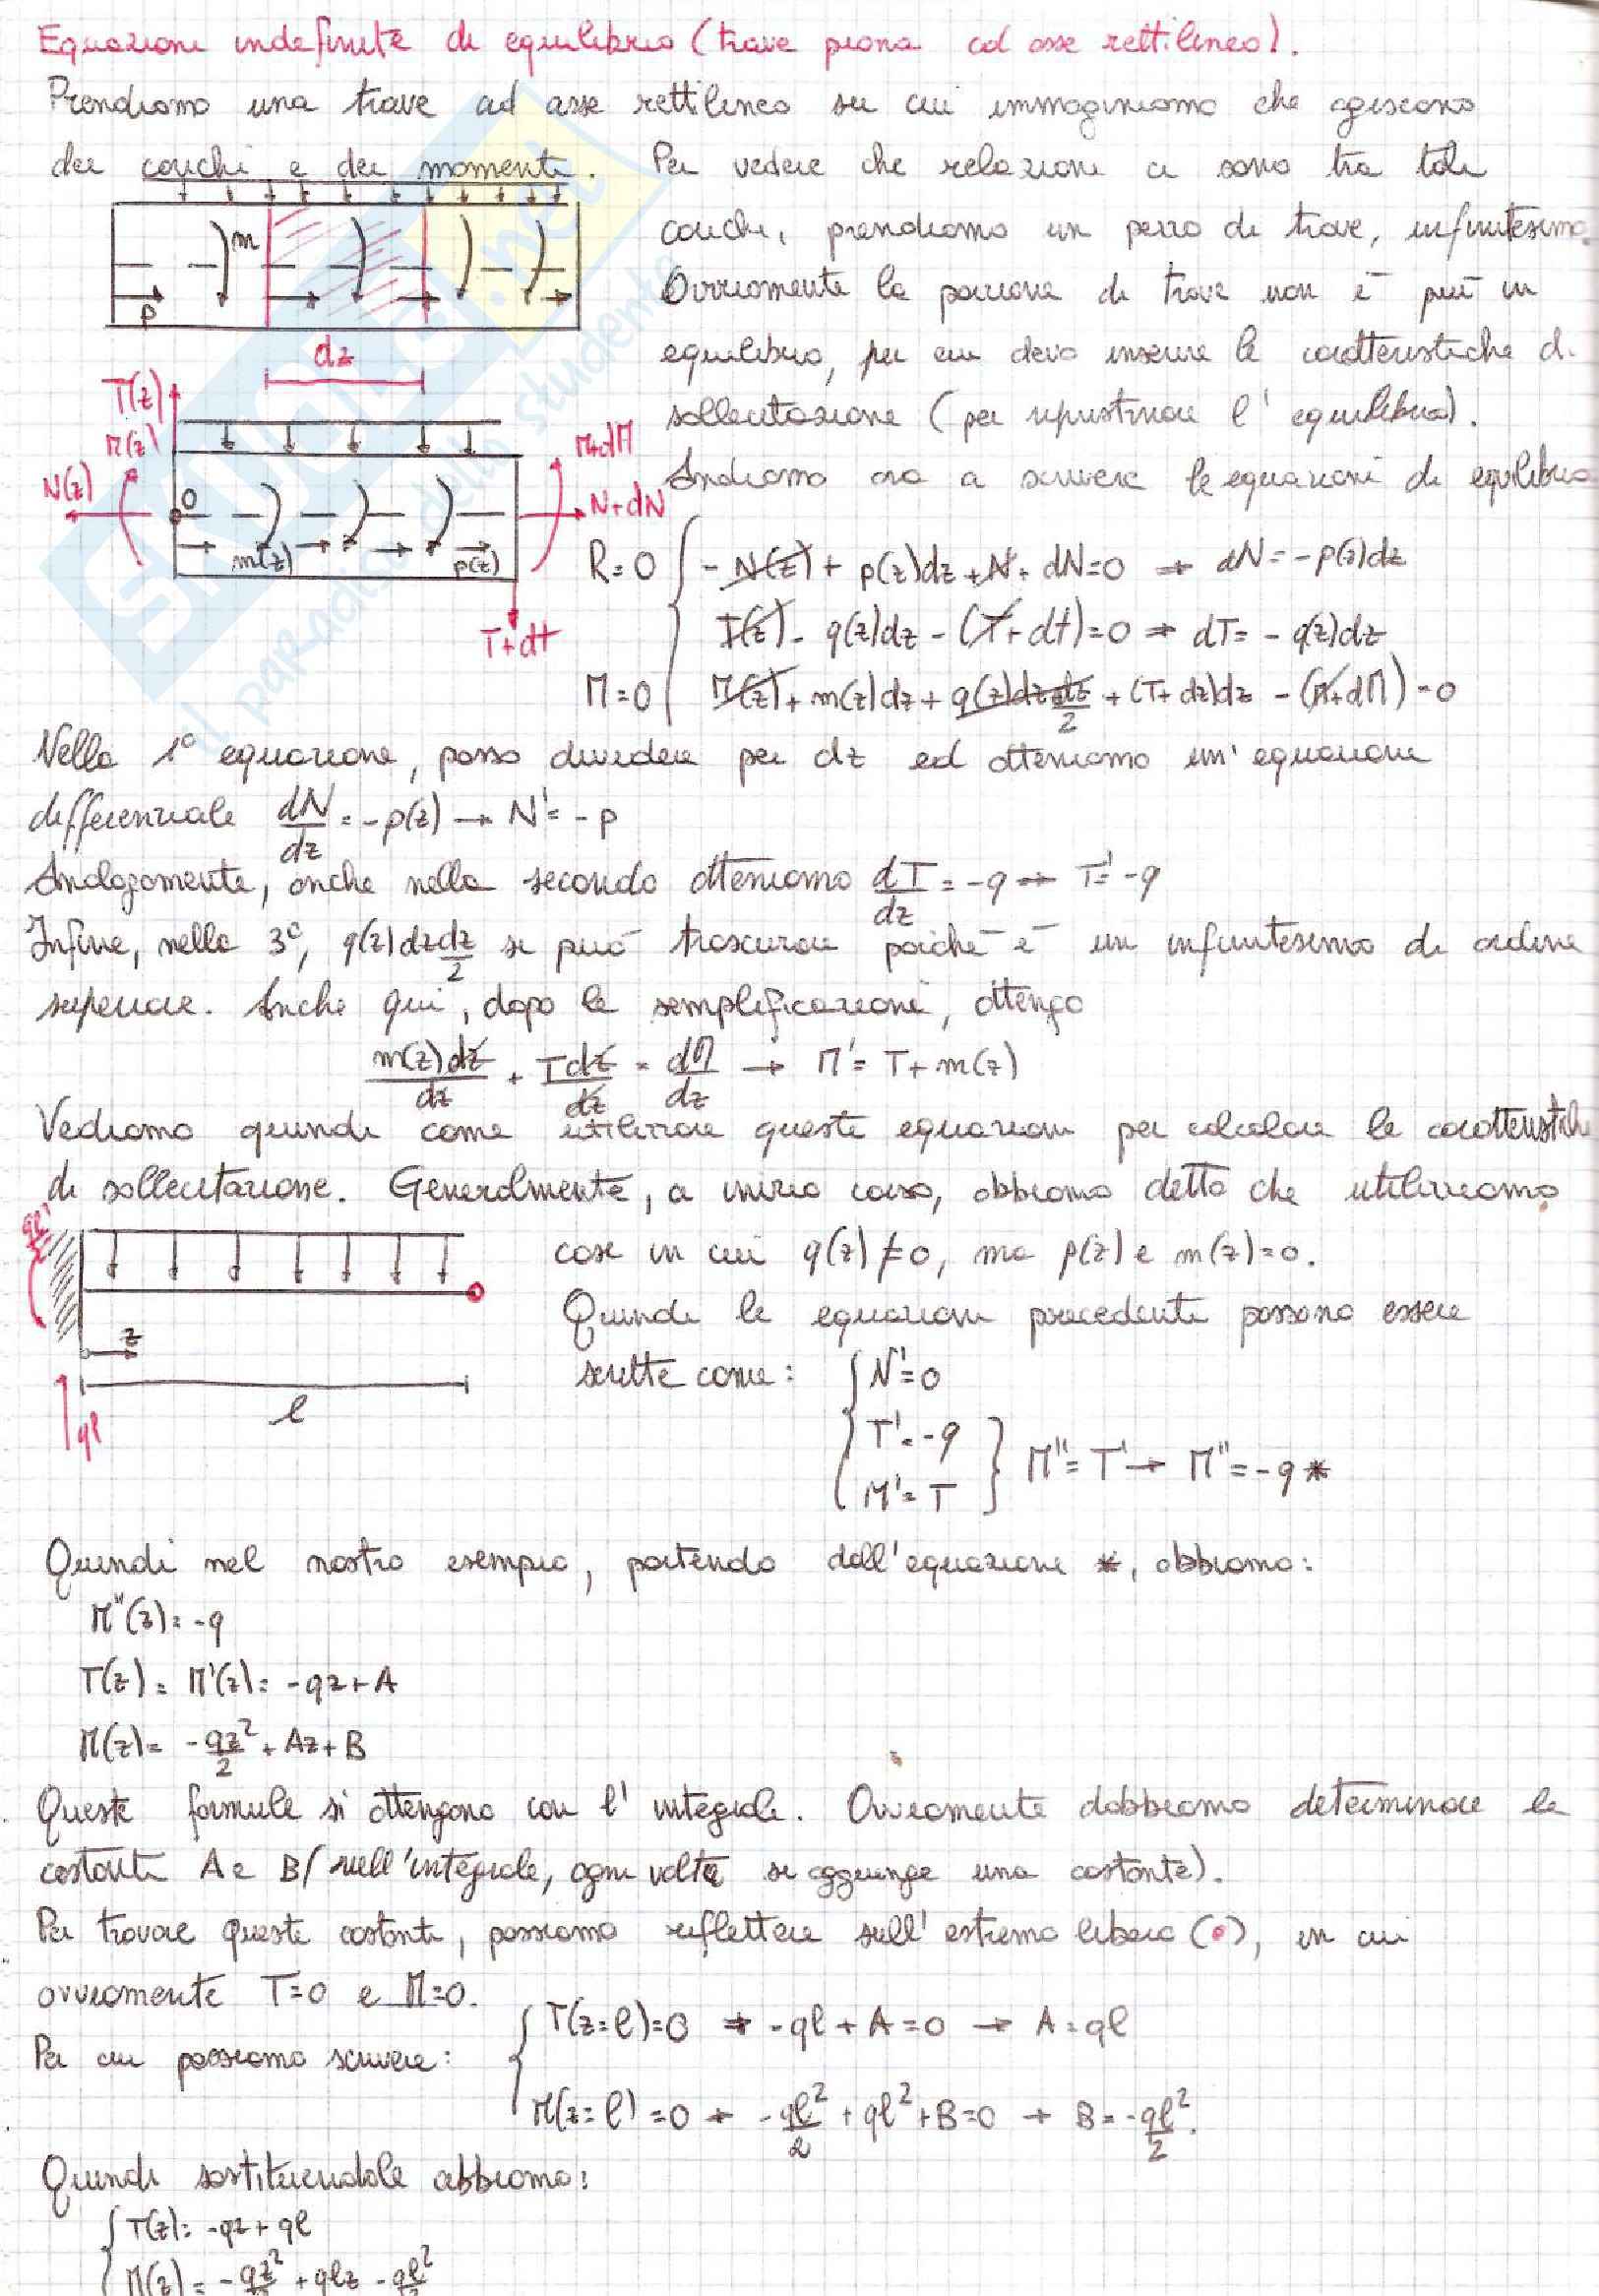 Equazioni indefinite di equilibrio (trave piana ad asse rettilineo).
Prendiamo una trave ad asse rettilineo su cui immaginiamo che agiscono
dei carichi e dei momenti. Per vedere che relazioni ci sono tra tali
carichi, prendiamo un pezzo di trave, infinitesimo.
Ovviamente la porzione di trave non è più in
equilibrio, per cui devo inserire le caratteristiche di
sollecitazione (per ripristinare l'equilibrio).
Andiamo ora a scrivere le equazioni di equilibrio
m
p
dz
T(z)
M(z)
N(z)
O
m(z)
p(z)
M+dM
N+dN
T+dt
R=0 { -N(z) + p(z)dz + N + dN=0 → dN = -p(z)dz
T(z) - q(z)dz - (T+dt)=0 → dT= -q(z)dz
M=0 M(z) + m(z)dz + q(z)dz dz/2 + (T+dz)dz - (M+dM)=0
Nella 1° equazione, posso dividere per dz ed otteniamo un'equazione
differenziale dN/dz = -p(z) → N'= -p
Analogamente, anche nella seconda otteniamo dT/dz = -q → T'= -q
Infine, nella 3°, q(z)dz dz/2 si può trascurare poichè è un infinitesimo di ordine
superiore. Anche qui, dopo le semplificazioni, ottengo
m(z)dz/dz + Tdz/dz = dM/dz → M'= T+m(z)
Vediamo quindi come utilizzare queste equazioni per calcolare le caratteristiche
di sollecitazione. Generalmente, a inizio corso, abbiamo detto che utilizziamo
case in cui q(z)≠0, ma p(z) e m(z)=0.
Quindi le equazioni precedenti possono essere
scritte come: { N'=0
T'= -q
M'= T } M''= T' → M''= -q *
z
l
ql
Quindi nel nostro esempio, partendo dall'equazione *, abbiamo:
M''(z)= -q
T(z)= M'(z)= -qz+A
M(z)= -qz²/2 + Az+B
Queste formule si ottengono con l'integrale. Ovviamente dobbiamo determinare le
costanti A e B (nell'integrale, ogni volta si aggiunge una costante).
Per trovare queste costanti, possiamo riflettere sull'estremo libero (o), in cui
ovviamente T=0 e M=0.
Per cui possiamo scrivere: { T(z=l)=0 → -ql + A=0 → A=ql
M(z=l)=0 → -ql²/2 + ql² + B=0 → B= -ql²/2.
Quindi sostituendole abbiamo:
{ T(z)= -qz+ql
M(z)= -qz²/2 + qlz - ql²/2